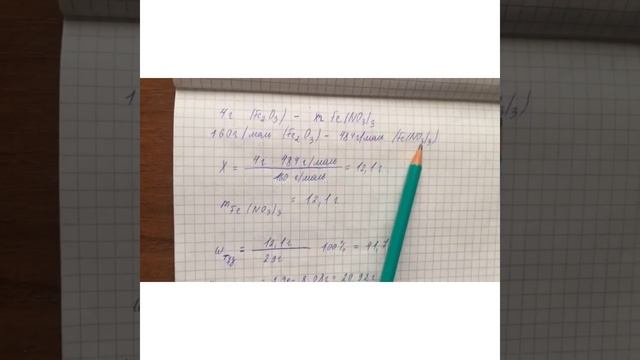 4г (Fe₂O₃) – xг Fe(NO₃)₃
160г/моль (Fe₂O₃) – 484г/моль (Fe(NO₃)₃)
X = 4г · 484 г/моль / 160 г/моль = 12,1 г
m Fe(NO₃)₃ = 12,1 г
ω = 12,1г / 29г 100% = 41,7
8,08г = 20,92г